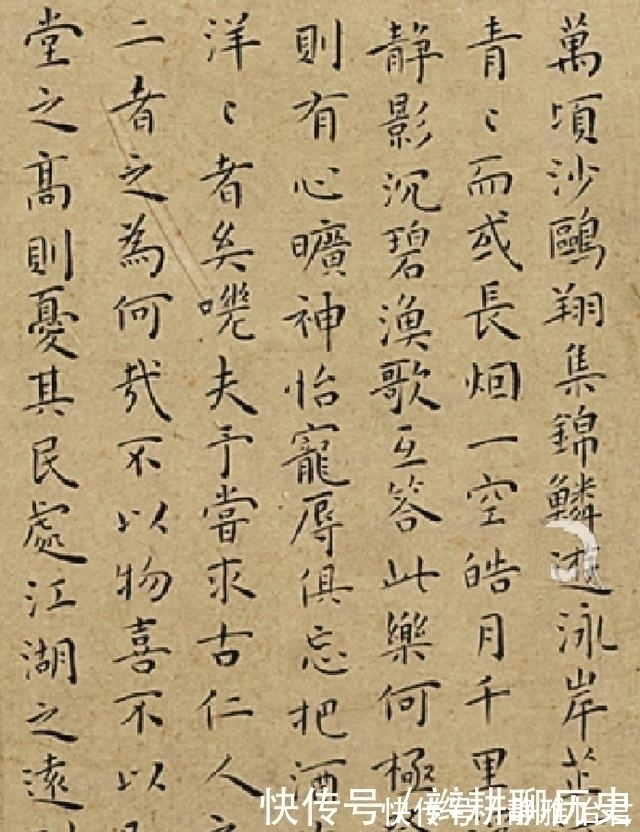 萬頃沙鷗翔集錦鱗遊泳岸芷
青〻而或長烟一空皓月千里
静影沉碧漁歌互答此樂何極
則有心曠神怡寵辱俱忘把酒
洋〻者矣夫予嘗求古仁人
二者之為何哉不以物喜不以
堂之髙則憂其民處江湖之遠
快传号/耕聊历史
快传号